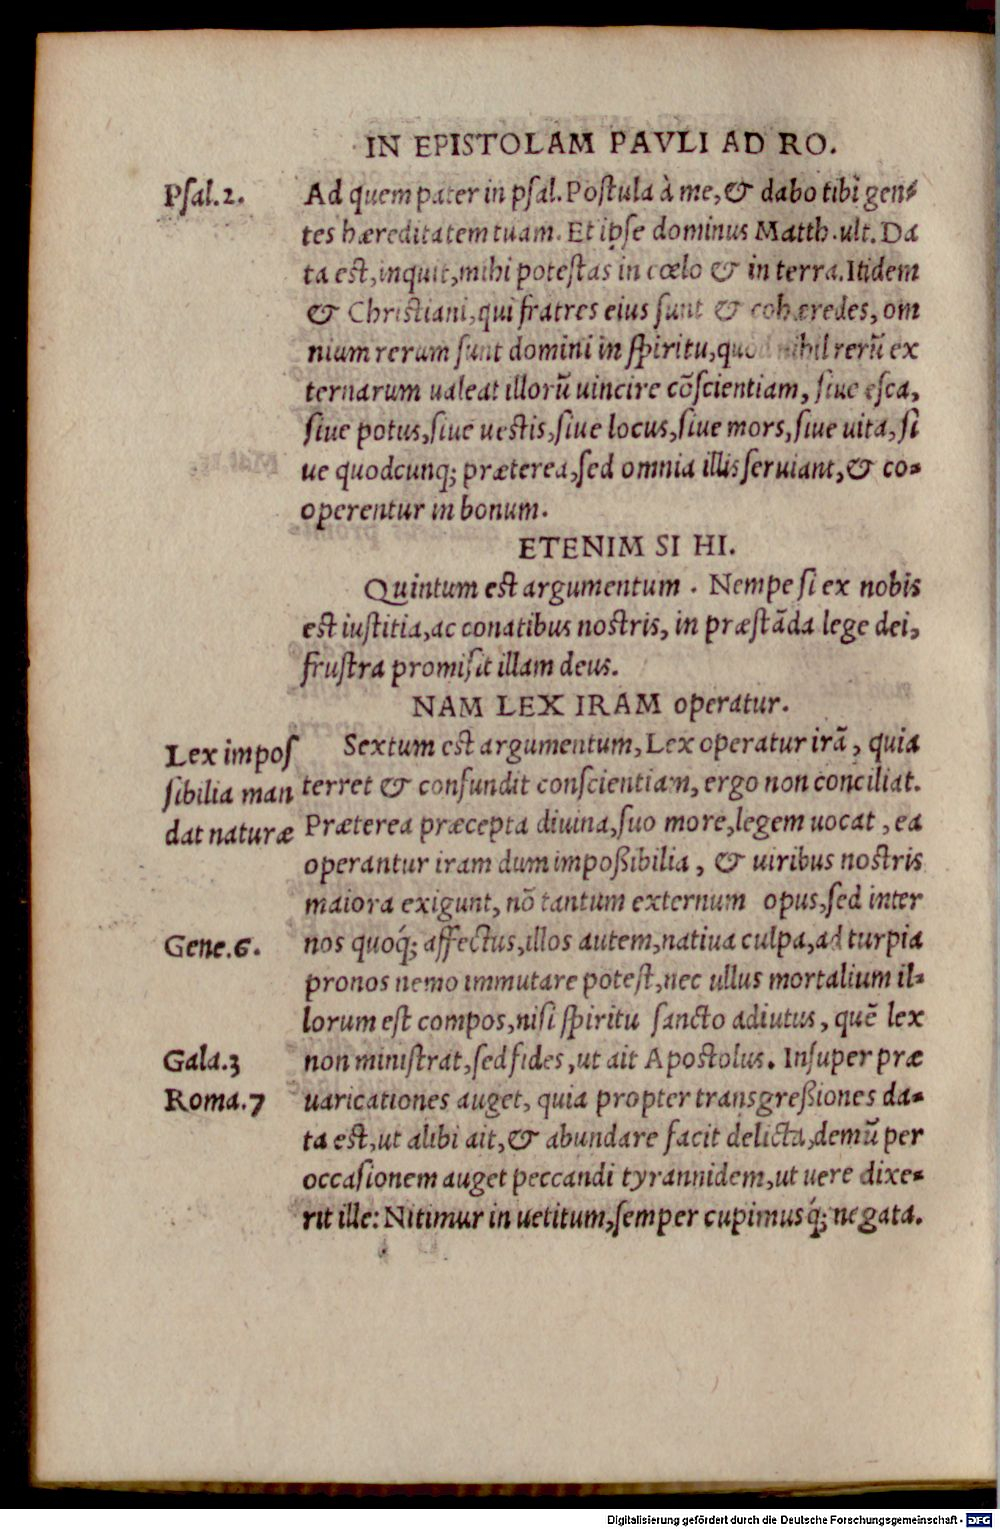 IN EPISTOLAM PAVLI AD RO.
Psal.2.
Ad quem pater in psal. Postula à me, & dabo tibi gen-
tes hæreditatem tuam. Et ipse dominus Matth.ult. Da
ta est, inquit, mihi potestas in cœlo & in terra. Itidem
& Christiani, qui fratres eius sunt & cohæredes, om
nium rerum sunt domini in spiritu, quod nihil rerũ ex
ternarum ualeat illorũ uincire cõscientiam, siue esca,
siue potus, siue uestis, siue locus, siue mors, siue uita, si
ue quodcunq; præterea, sed omnia illis seruiant, & co-
operentur in bonum.
ETENIM SI HI.
Quintum est argumentum. Nempe si ex nobis
est iustitia, ac conatibus nostris, in præstãda lege dei,
frustra promisit illam deus.
NAM LEX IRAM operatur.
Lex impos
sibilia man
dat naturæ
Sextum est argumentum, Lex operatur irã, quia
terret & confundit conscientiam, ergo non conciliat.
Præterea præcepta diuina, suo more, legem uocat, ea
operantur iram dum impoßibilia, & uiribus nostris
maiora exigunt, nõ tantum externum opus, sed inter
Gene.6.
nos quoq́; affectus, illos autem, natiua culpa, ad turpia
pronos nemo immutare potest, nec ullus mortalium il-
lorum est compos, nisi spiritu sancto adiutus, quẽ lex
Gala.3
non ministrat, sed fides, ut ait Apostolus. Insuper præ
Roma.7
uaricationes auget, quia propter transgreßiones da-
ta est, ut alibi ait, & abundare facit delicta, demũ per
occasionem auget peccandi tyrannidem, ut uere dixe-
rit ille: Nitimur in uetitum, semper cupimusq́; negata.
Digitalisierung gefördert durch die Deutsche Forschungsgemeinschaft - DFG